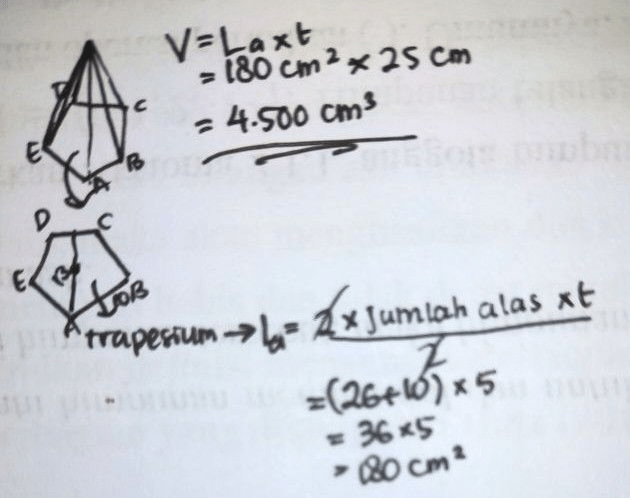 V = La x t
= 180 cm² x 25 cm
= 4.500 cm³
D
C
E
B
A
D
C
E
B
A
trapesium → La = 2 x jumlah alas x t
2
= (26+10) x 5
= 36 x 5
= 180 cm²